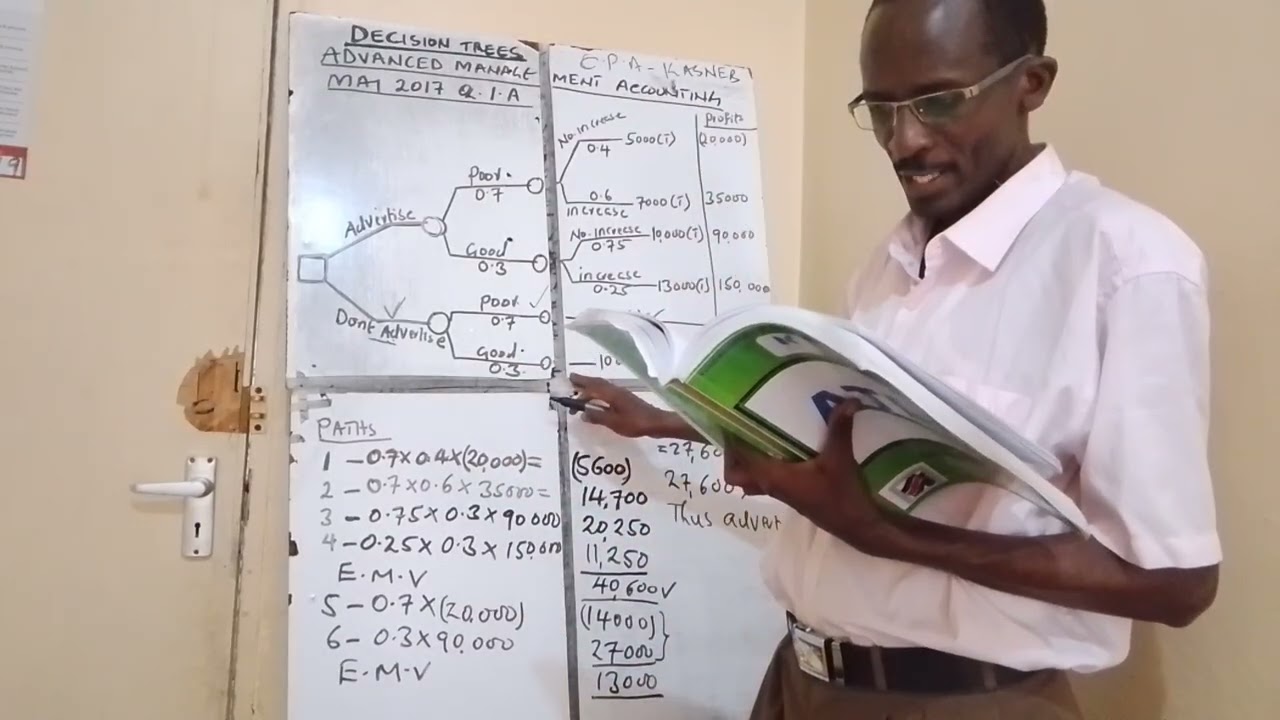 DECISION TREES
ADVANCED MANAGE
MAY 2017 Q.1.A
C.P.A - KASNEB
MENT ACCOUNTING
Profits
No. increase
0.4
5000(T)
(20,000)
Poor.
0.7
0.6
increase
7000(T)
35000
Advertise
No. increase
0.75
10,000(T)
90,000
Good
0.3
increase
0.25
13000(T)
150,000
Poor
0.7
Dont Advertise
Good.
0.3
PATHS
1 - 0.7 X 0.4 X (20,000) = (5600)
2 - 0.7 X 0.6 X 35000 = 14,700
3 - 0.75 X 0.3 X 90000 20,250
4 - 0.25 X 0.3 X 150,000 11,250
E.M.V 40,600
5 - 0.7 X (20,000) (14000)
6 - 0.3 X 90,000 27000
E.M.V 13000
= 27,60
27,600
Thus advert